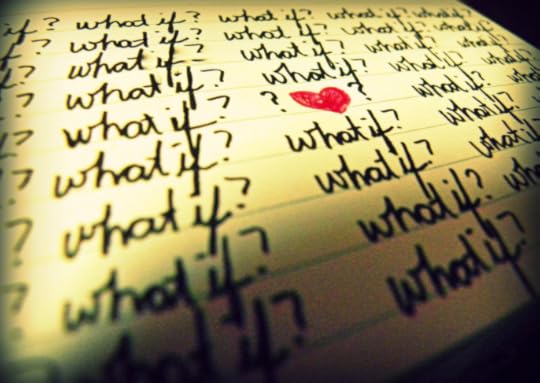 if? what if? what if? what if? what if?
? what if? what if? what if? what if?
? what if? what if? what if? what if?
? what if? what if? what if? what if
? what if? ? ♥ ? what if? what
? what if? what if? what if?
? what if? what if? what if
? what if? what if? wh
what if? what if?